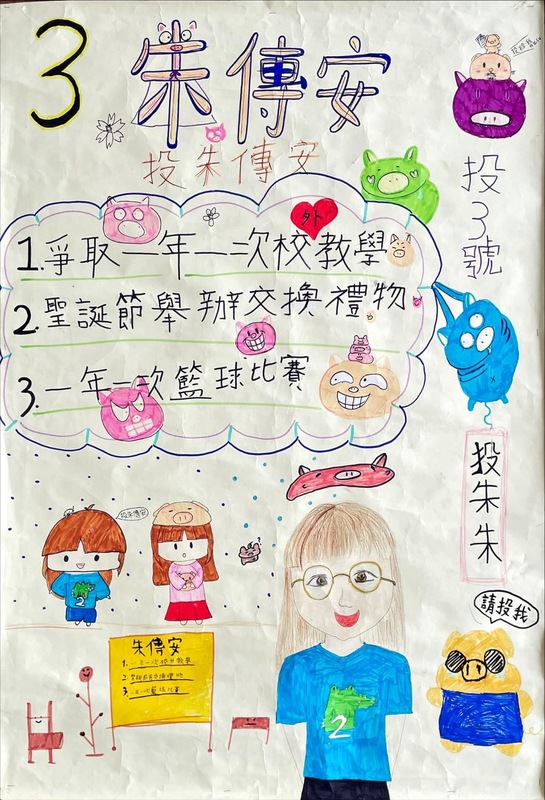 3 朱傳安
投朱傳安
投3號
1.爭取一年一次校外教學
2.聖誕節舉辦交換禮物
3.一年一次籃球比賽
投朱朱
投朱傳安
請投我
朱傳安
1.一年一次校外教學
2.聖誕節交換禮物
3.一年一次籃球比賽
2
2